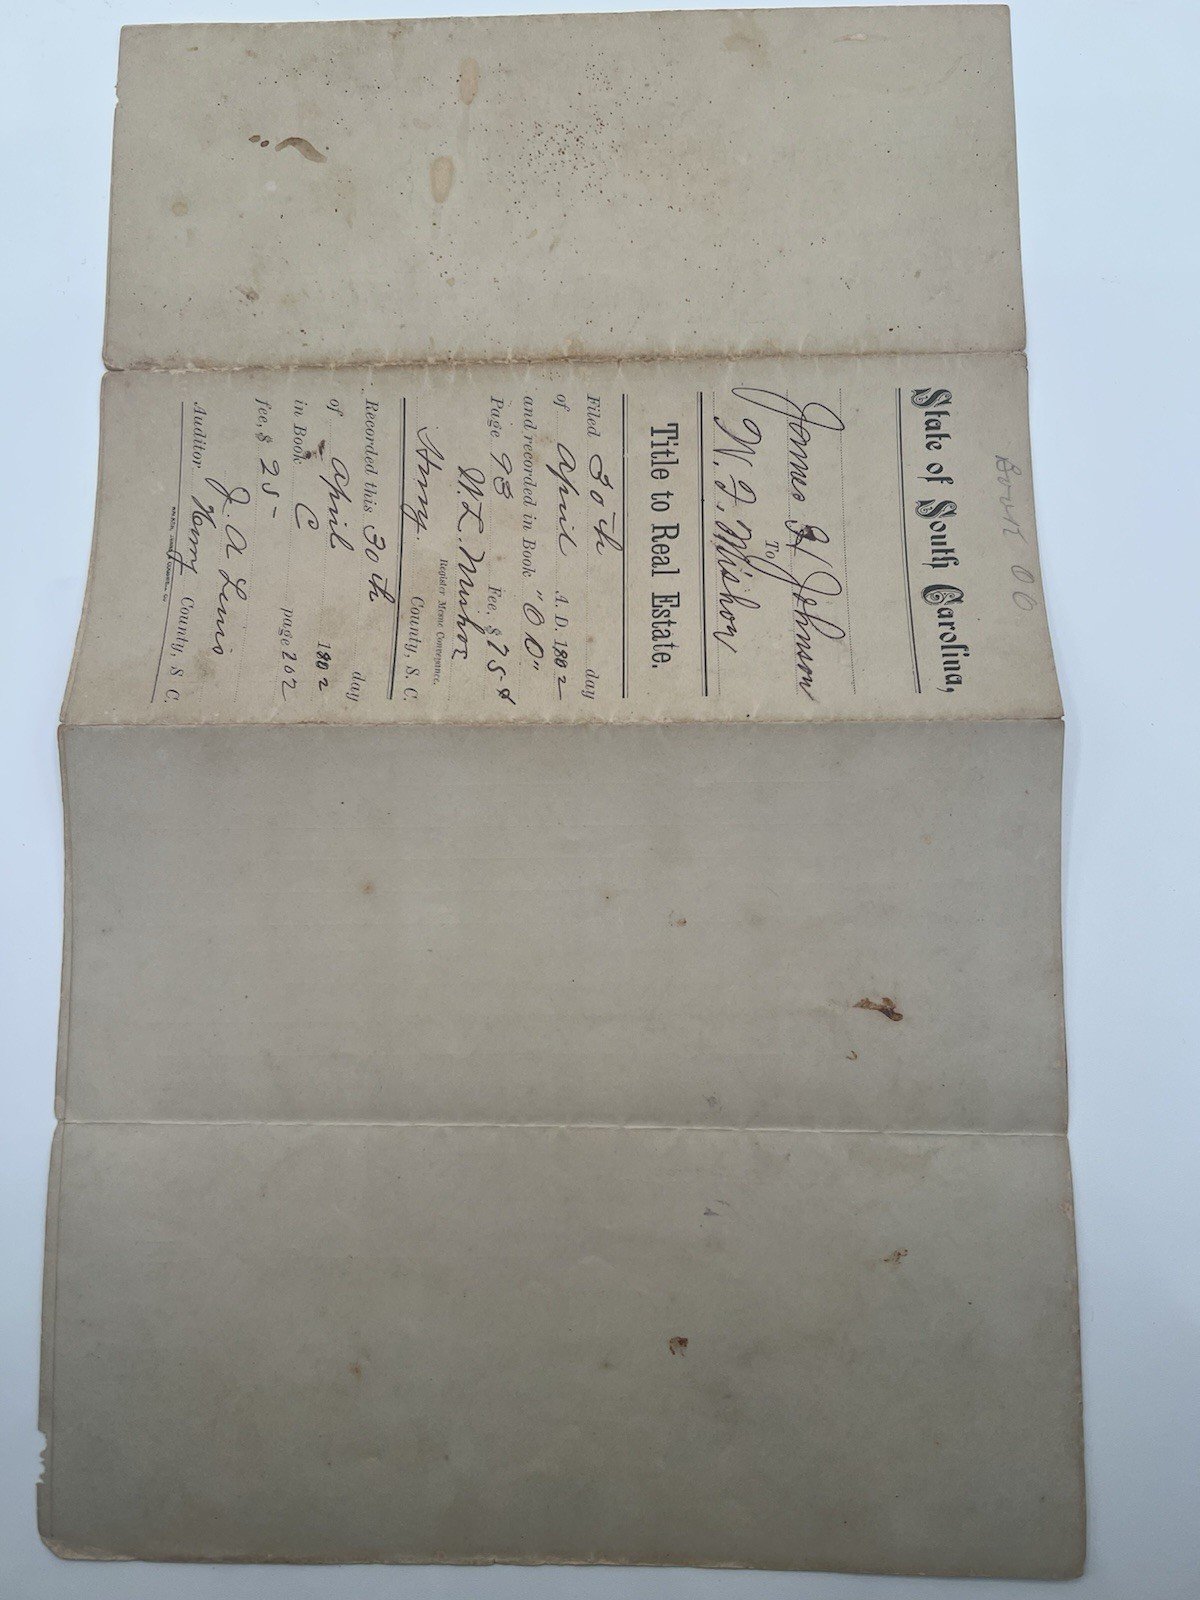 Book OO
State of South Carolina,
James H Johnson
To
W. F. Mishow
Title to Real Estate.
Filed 30th day
of April A. D. 1902
and recorded in Book "OO"
Page 93 Fee, $ 75¢
W. L. Mishoe
Register Mesne Conveyance.
Horry County, S. C.
Recorded this 30th day
of April 1902
in Book C page 202
fee, $ 25-
J. A Lewis
Auditor Horry County, S C.